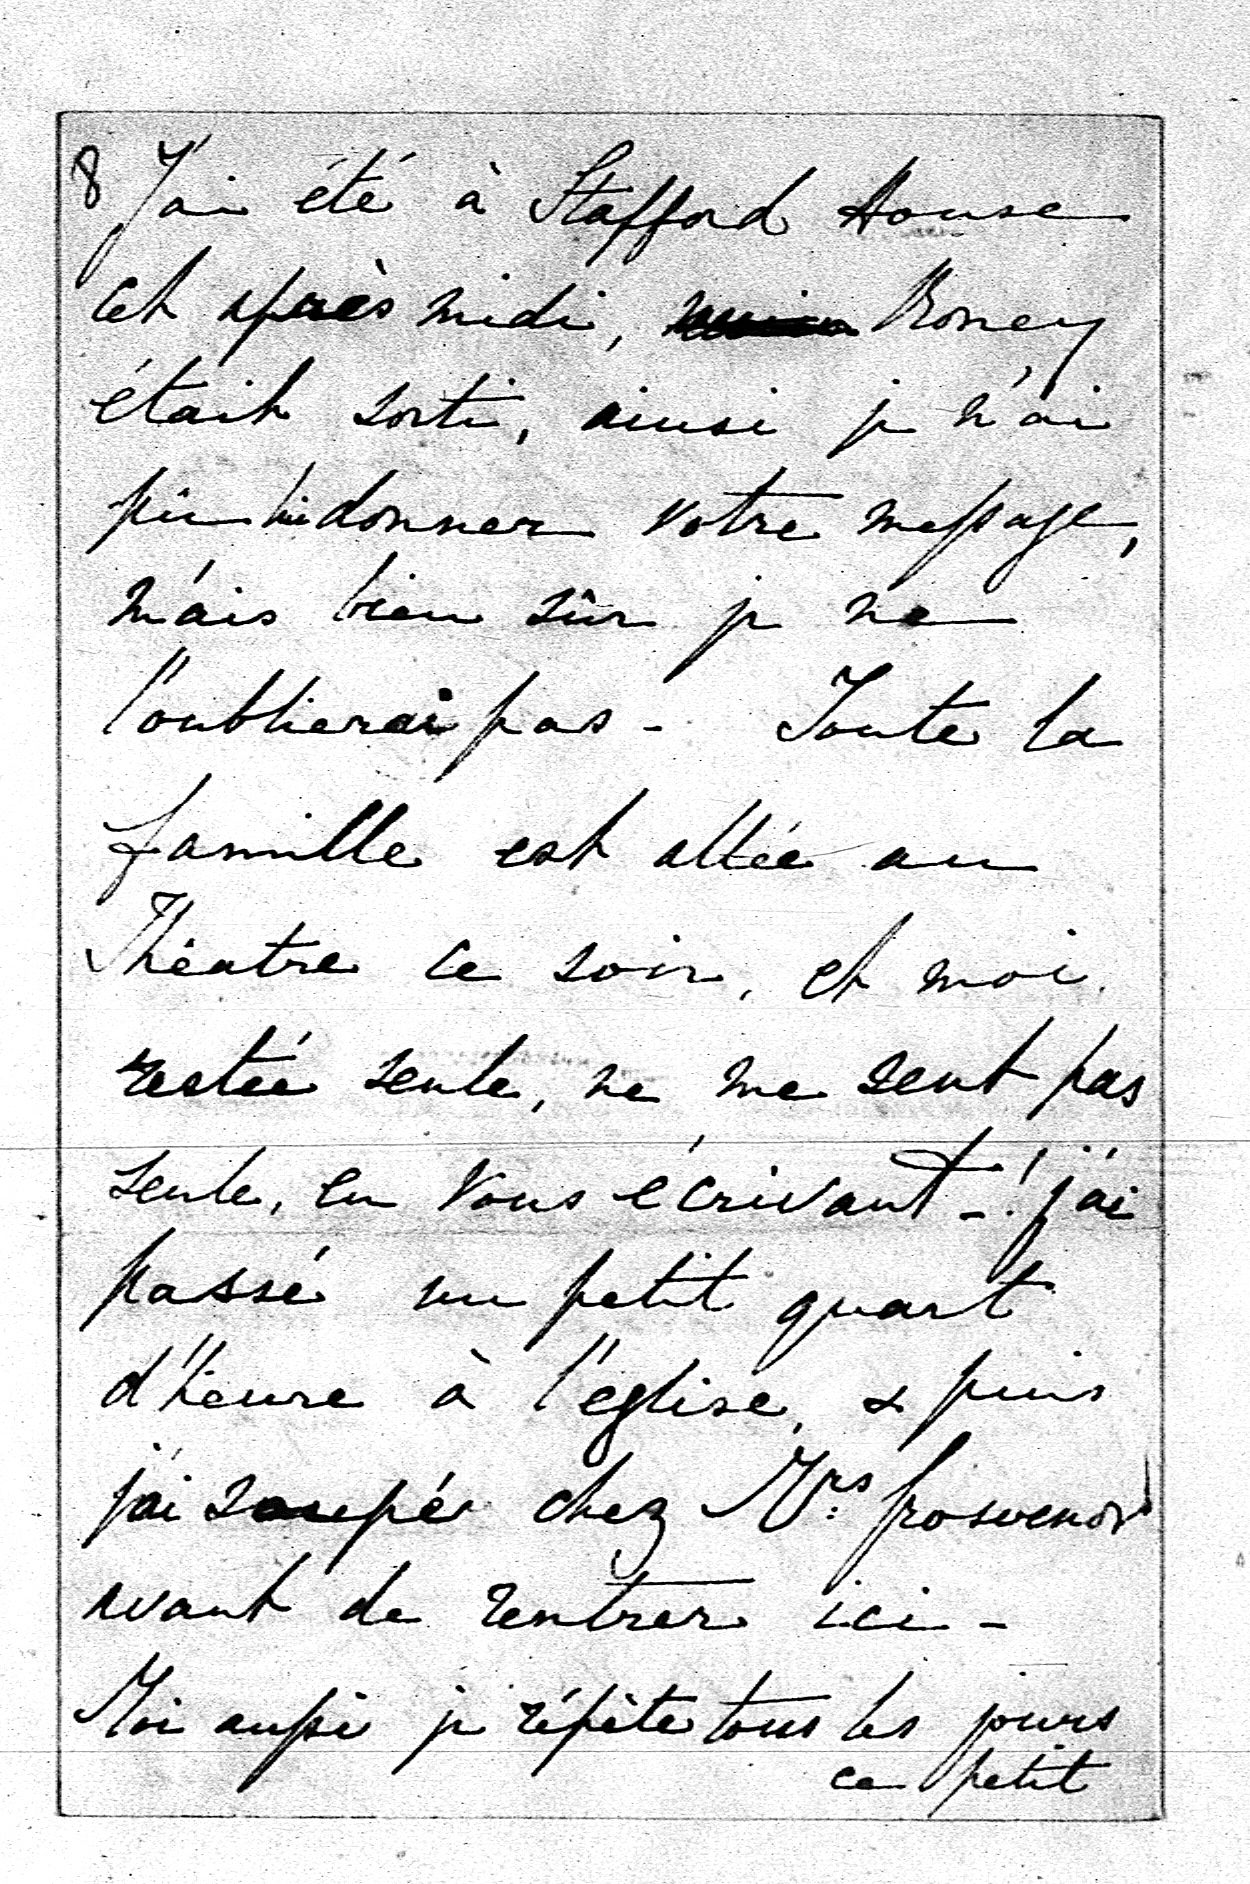 8 J'ai été à Stafford House
cet après midi, Roney
était sorti, ainsi je n'ai
pû lui donner votre message,
mais bien sûr je ne
l'oublierai pas - Toute la
famille est allée au
Théatre ce soir, et moi
restée seule, ne me sent pas
seule, en vous écrivant -! j'ai
passé un petit quart
d'heure à l'église, & puis
j'ai soupé chez Mrs: Grosvenor
avant de rentrer ici -
Moi aussi je répète tous les jours
ce petit